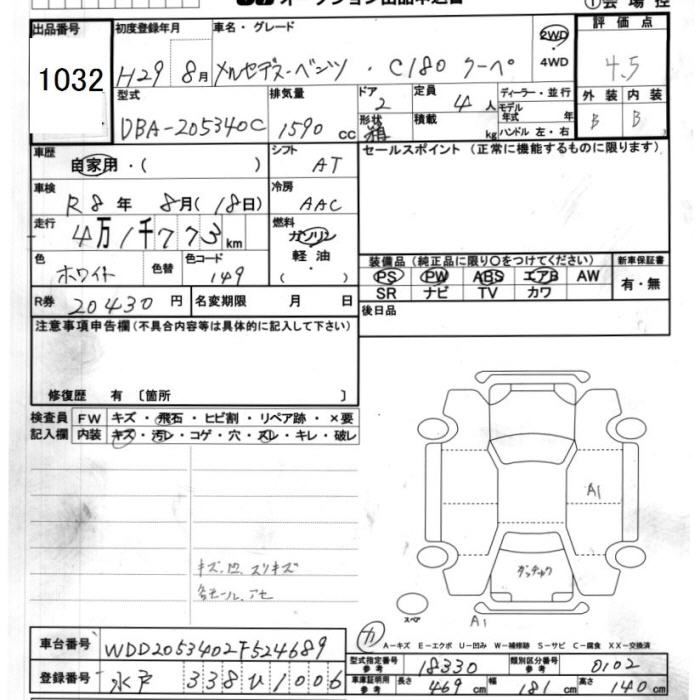 オークション出品申込書 ①会場控
出品番号 1032
初度登録年月 H29 8月
車名・グレード メルセデス-ベンツ ・ C180 クーペ
2WD ・ 4WD
評価点 4.5
外装 B 内装 B
型式 DBA-205340C
排気量 1590 cc
ドア 2
形状 箱
定員 4人
積載 kg
ディーラー・並行
モデル年式 年
ハンドル 左・右
車歴 自家用・( )
シフト AT
セールスポイント (正常に機能するものに限ります)
車検 R8年 8月(18日)
冷房 AAC
走行 4万1千773km
燃料 ガソリン 軽油・( )
色 ホワイト 色替 色コード 149
装備品 (純正品に限り○をつけてください)
PS PW ABS エアB AW
SR ナビ TV カワ
新車保証書 有・無
R券 20430円 名変期限 月 日
後日品
注意事項申告欄(不具合内容等は具体的に記入して下さい)
修復歴 有 〔箇所 〕
検査員記入欄
FW キズ・飛石・ヒビ割・リペア跡・×要
内装 キズ・汚レ・コゲ・穴・スレ・キレ・破レ
A1
キズ、凹、スリキズ
各モール、アセ
スペア
A1
A-キズ E-エクボ U-凹み W-補修跡 S-サビ C-腐食 XX-交換済
車台番号 WDD2053402F524689
型式指定番号 参考 18330 類別区分番号 参考 0102
登録番号 水戸 338ひ1006
車庫証明用 参考 長さ 469cm 幅 181cm 高さ 140cm